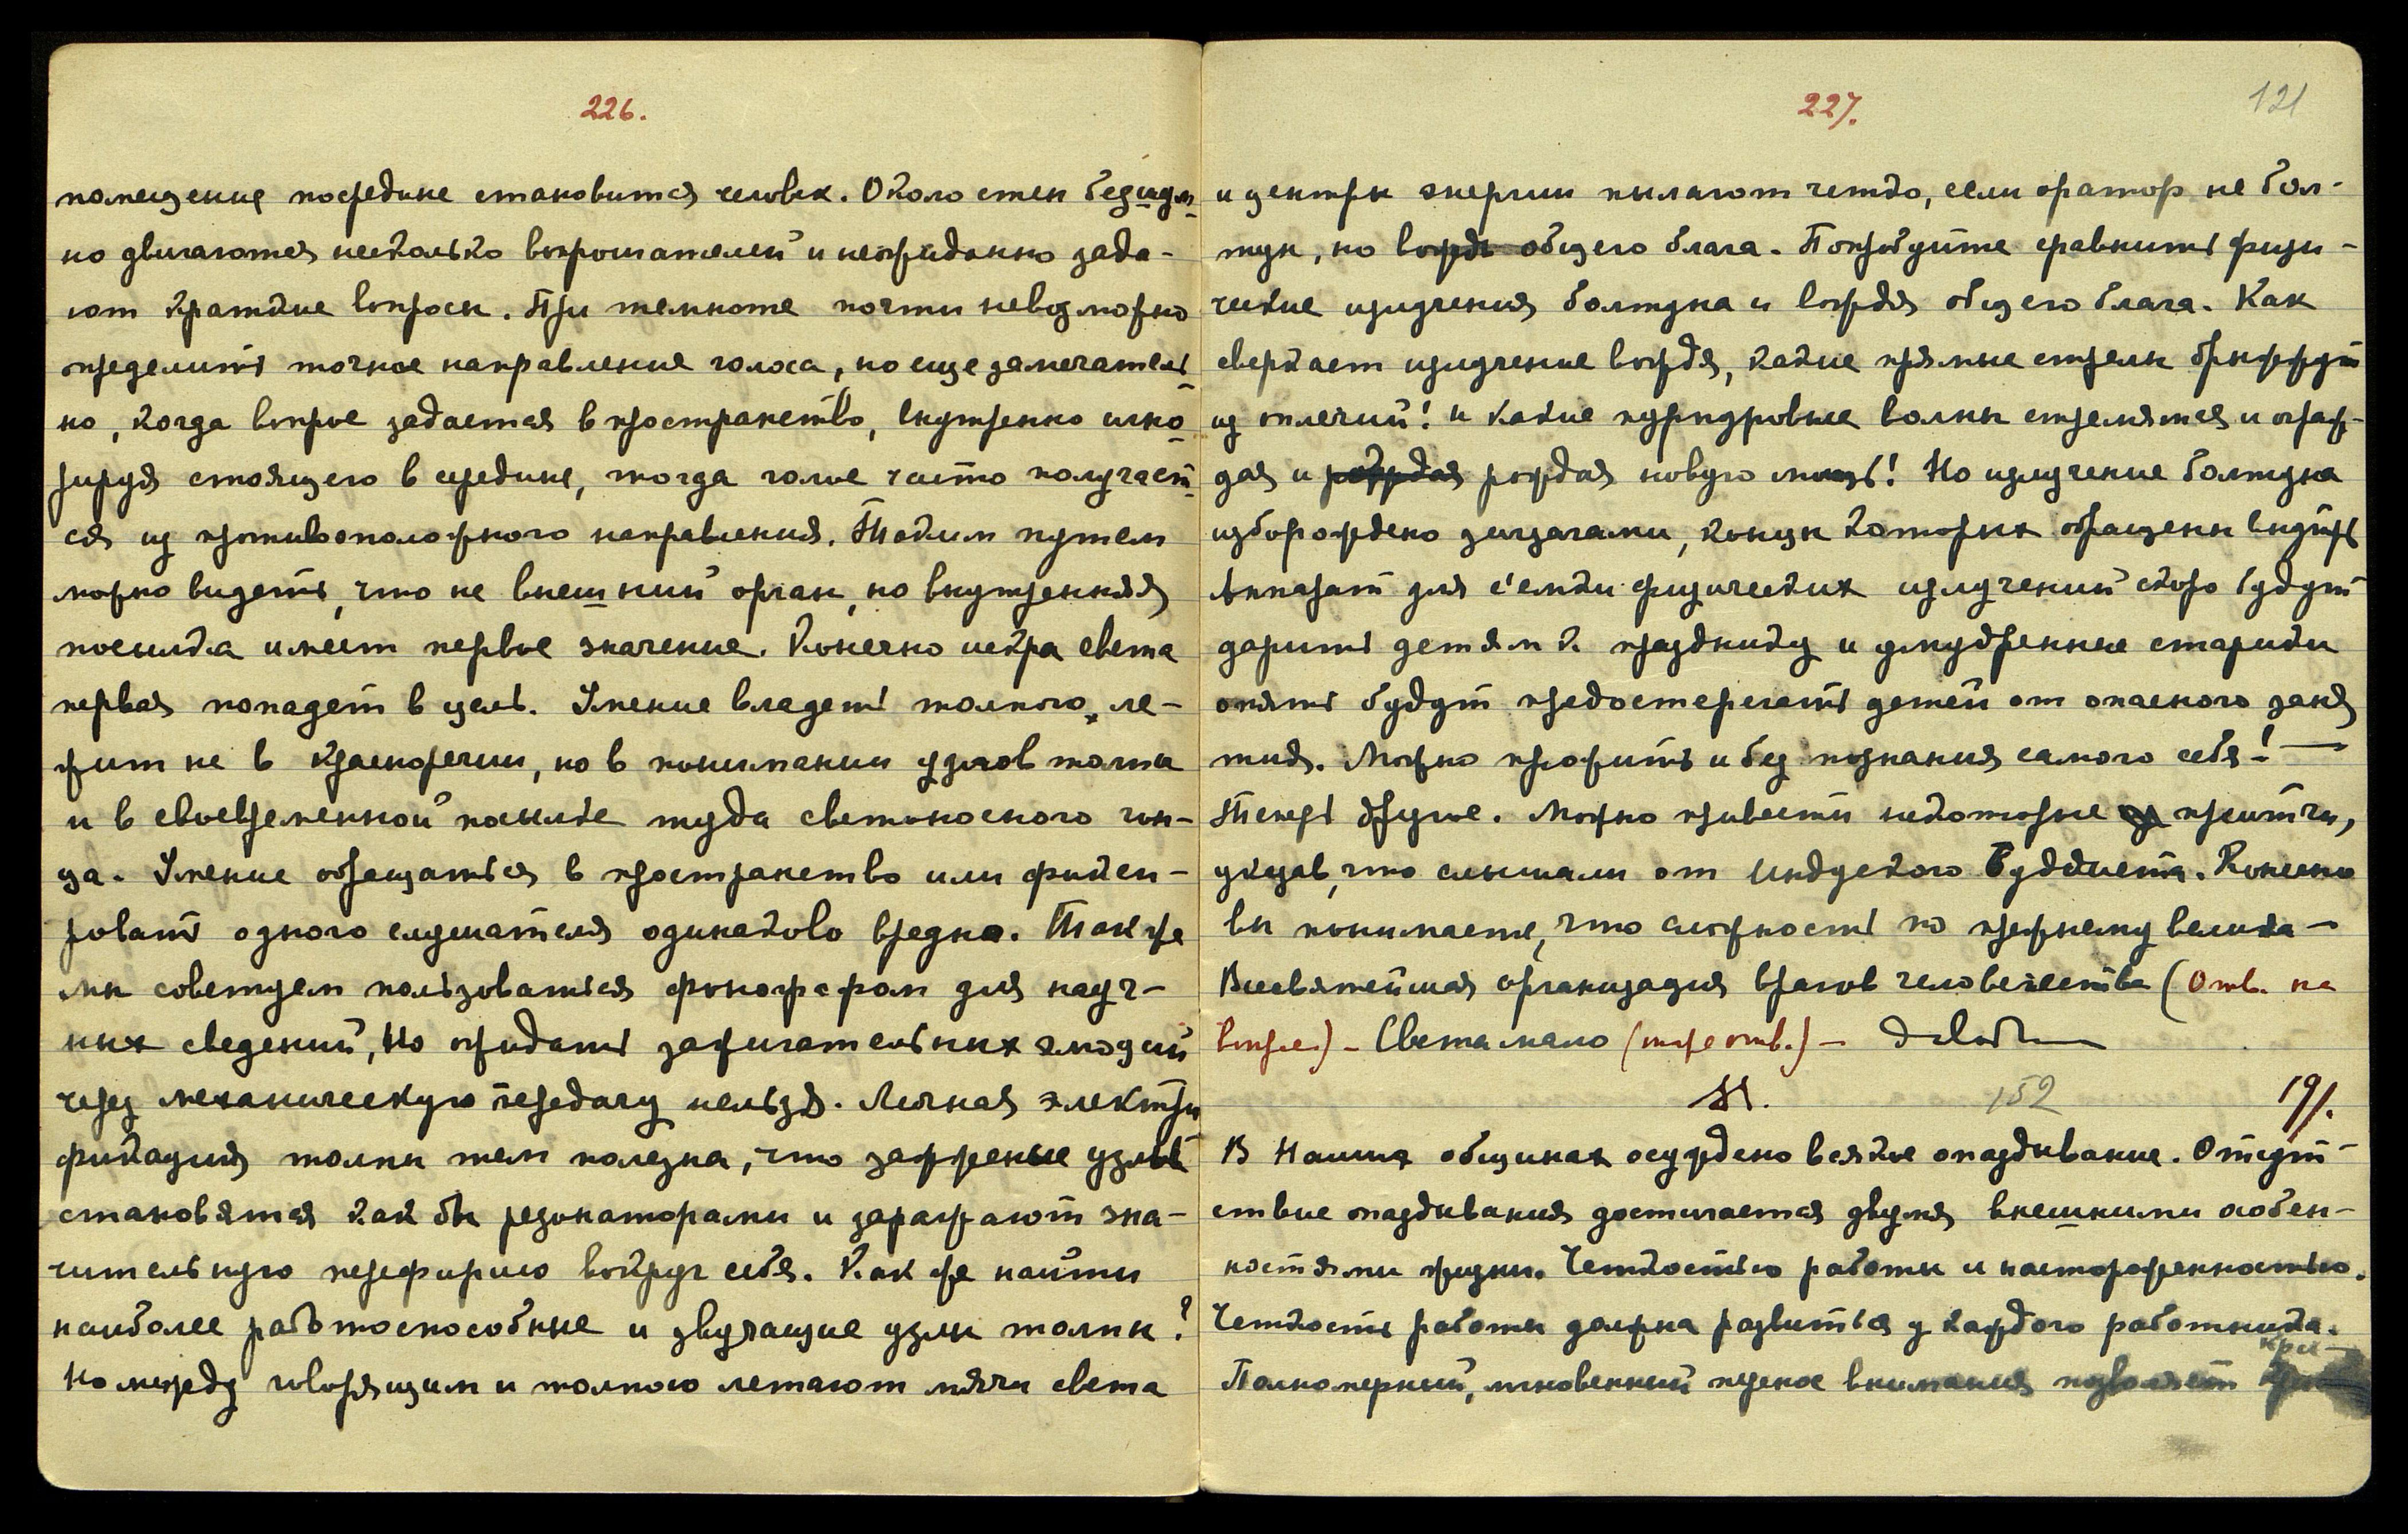 226.
помещение посредине становится человек. Около стен бесшум-
но двигаются несколько вопрошателей и неожиданно зада-
ют краткие вопросы. При темноте почти невозможно
определить точное направление голоса, но еще замечатель-
но, когда вопрос задается в пространство, внутренно игно-
рируя стоящего в середине, тогда голос часто получает-
ся из противоположного направления. Таким путем
можно видеть, что не внешний орган, но внутренняя
посылка имеет первое значение. Конечно искра света
первая попадет в цель. Умение владеть толпою, ле-
жит не в красноречии, но в понимании узлов толпы
и в своевременной посылке туда светоносного гон-
ца. Умение обращаться в пространство или фикси-
ровать одного слушателя одинаково вредно. Так же
мы советуем пользоваться фонографом для науч-
ных сведений, Но ожидать зажигательных эмоций
через механическую передачу нельзя. Личная электри
фикация толпы тем полезна, что заряженные узлы
становятся как бы резонаторами и заражают зна-
чительную переферию вокруг себя. Как же найти
наиболее работоспособные и звучащие узлы толпы?
Но между говорящим и толпою летают мячи света
227.
121
и центры энергии пылают четко, если оратор не бол-
тун, но вождь общего блага. Попробуйте сравнить физи-
ческие излучения болтуна и вождя общего блага. Как
сверкает излучение вождя, какие прямые стрелы брызжут
из оплечий! и какие пурпуровые волны стремятся ограж-
дая и рождая новую мощь! Но излучение болтуна
изборождено зигзагами, концы которых обращены внутрь
Аппарат для с'емки физических излучений скоро будут
дарить детям к празднику и умудренные старики
опять будут предостерегать детей от опасного заня
тия. Можно прожить и без познания самого себя! —
Теперь другое. Можно привести некоторые притчи,
указав, что слышали от Индусского Буддиста. Конечно
вы понимаете, что сложность по прежнему велика —
Всесвятейшая организация врагов человечества (Отв. на
вопрос.) — Света мало (тоже отв.) — Довольно
11. 152 191.
В Наших общинах осуждено всякое опаздывание. Отсут-
ствие опаздывания достигается двумя внешними особен-
ностями жизни. Четкостью работы и настороженностью.
Четкость работы должна развиться у каждого работника.
кри-
Полномерный, мгновенный перенос внимания позволяет